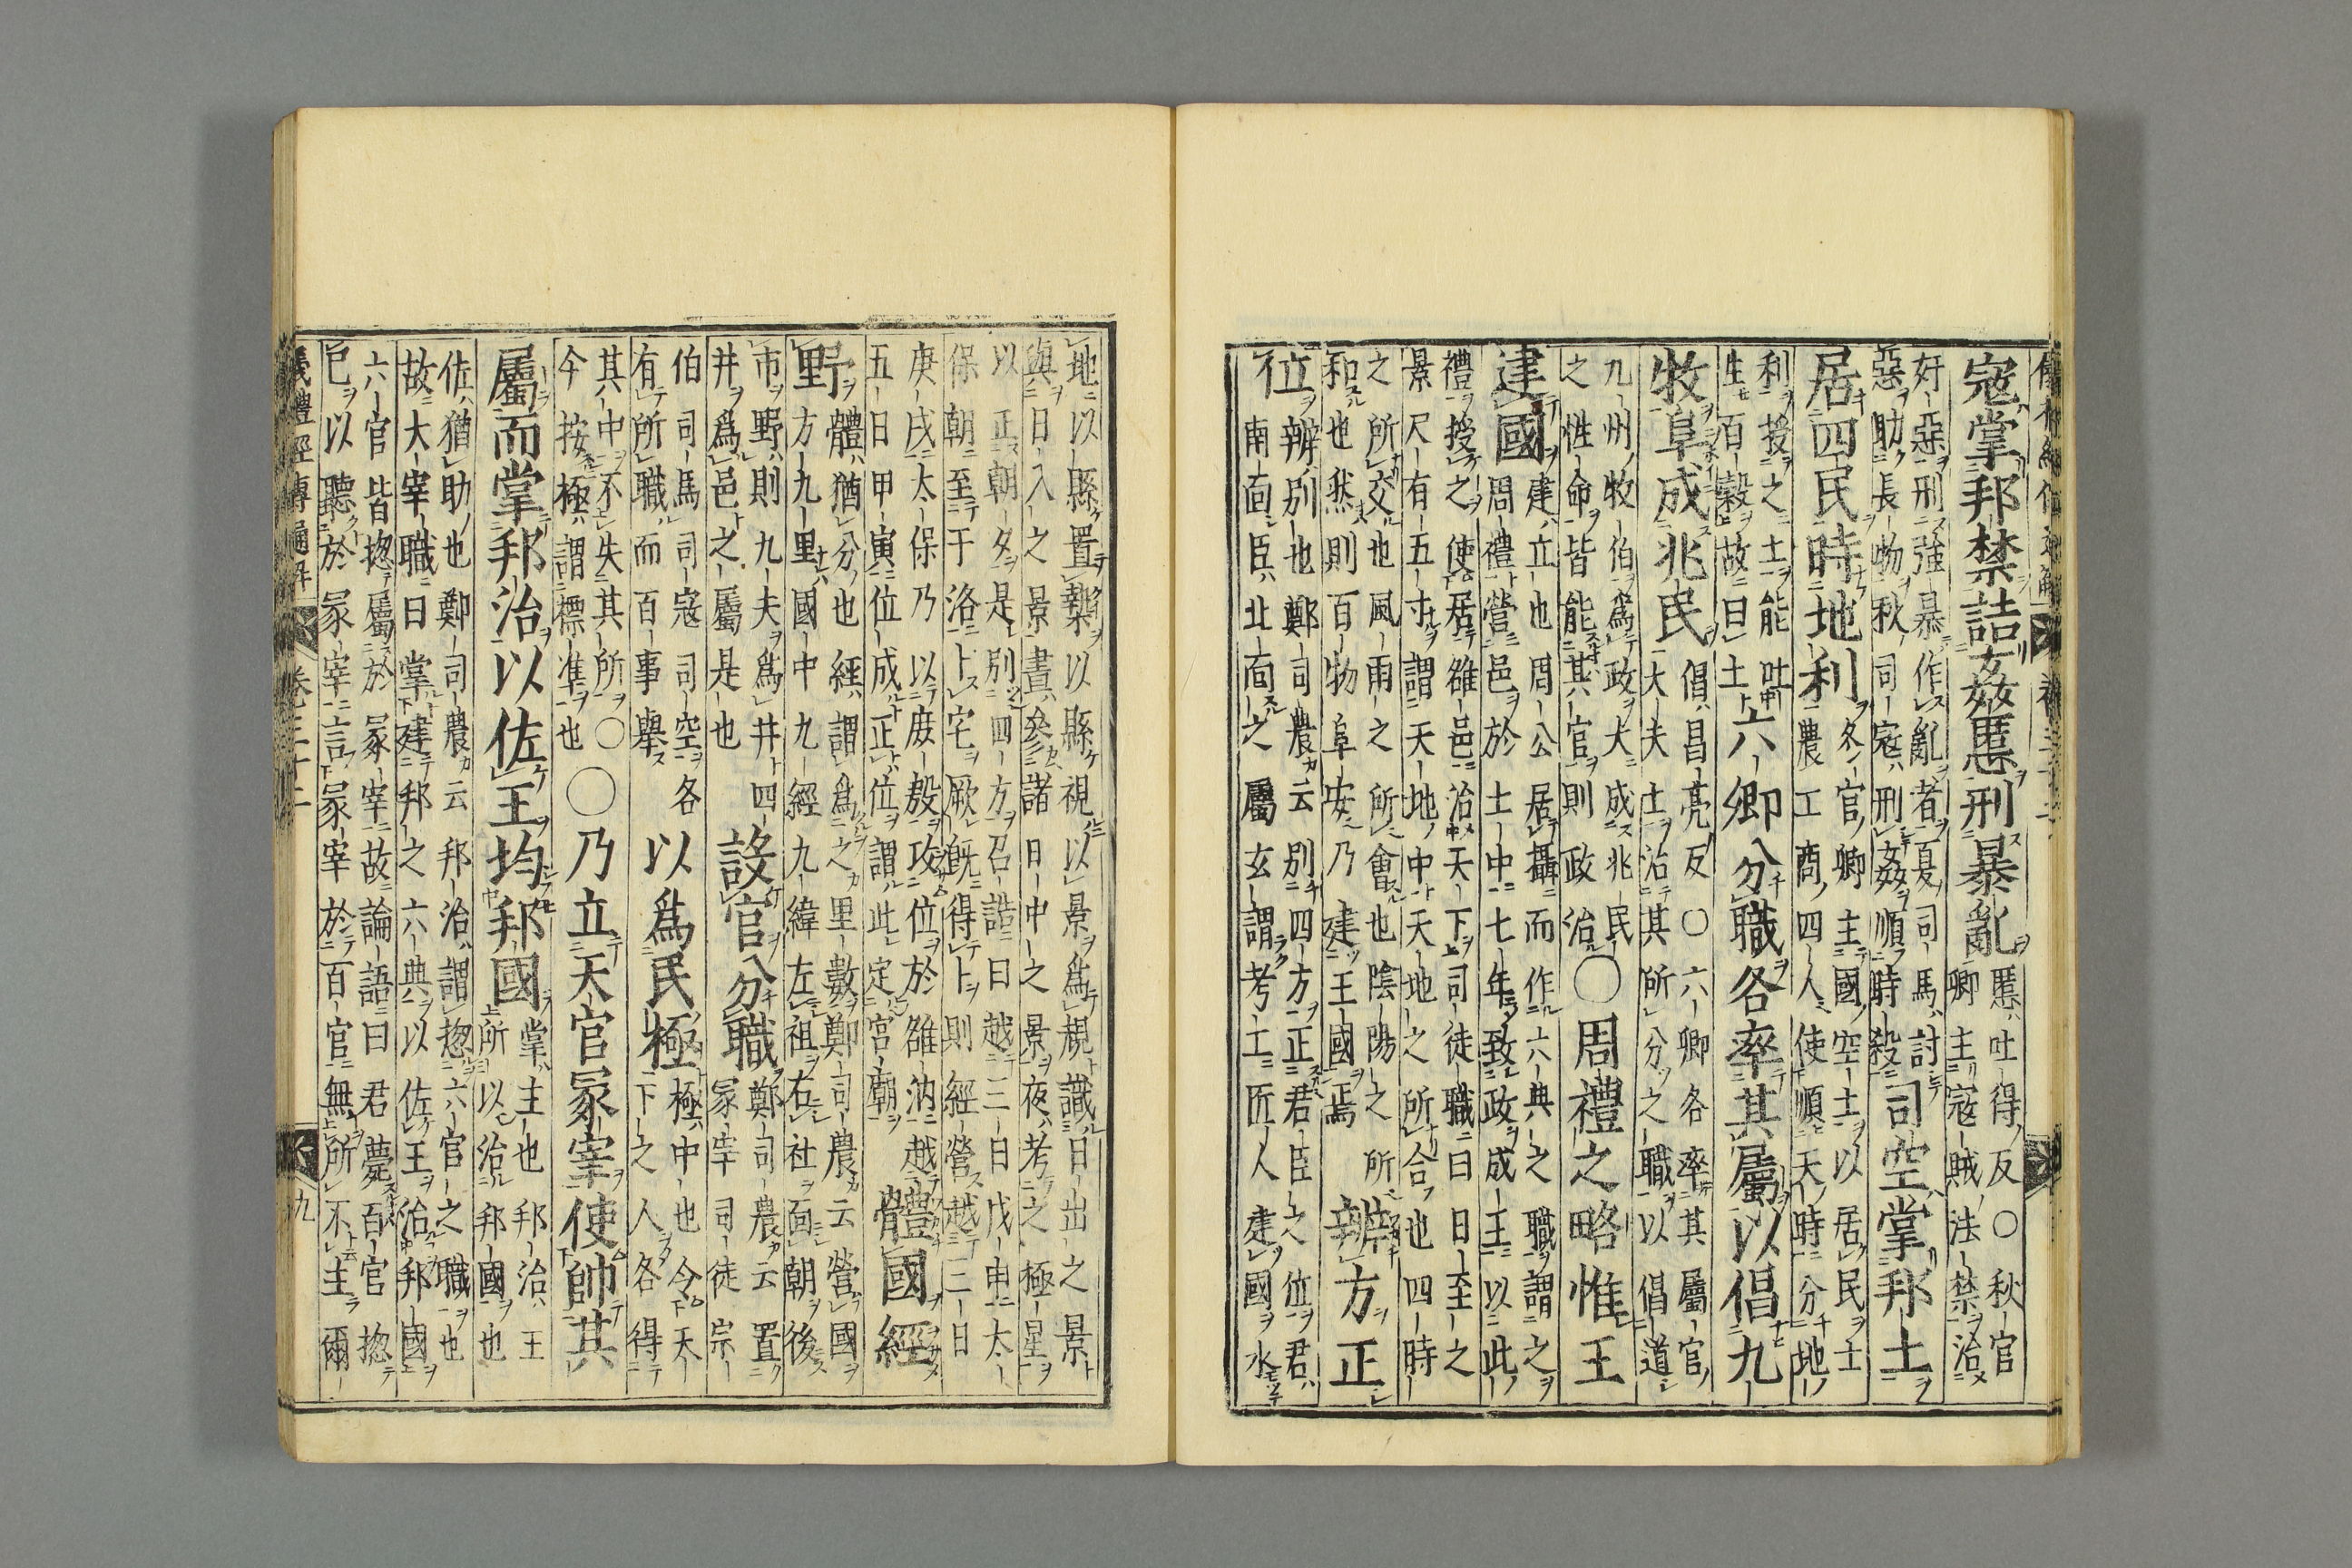 寇掌邦禁詰姦慝刑暴亂慝吐得反○秋官
卿主寇賊法禁治
奸惡刑強暴作亂者夏司馬討
惡助長物秋司寇刑姦順時殺司空掌邦土
居四民時地利冬官卿主國空土以居民士
農工商四人使順天時分地
利授之土能吐
生百穀故曰土六卿分職各率其屬以倡九
牧阜成兆民倡昌亮反○六卿各率其屬官
大夫士治其所分之職以倡道
九州牧伯爲政大成兆民
之性命皆能其官則政治○周禮之略惟王
建國建立也周公居攝而作六典之職謂之
周禮營邑於土中七年致政成王以此
禮授之使居雒邑治天下司徒職曰日至之
景尺有五寸謂天地中天地之所合也四時
之所交也風雨之所會也陰陽之所
和也然則百物阜安乃建王國焉辨方正
位辨別也鄭司農云別四方正君臣之位君
南面臣北面之屬玄謂考工匠人建國水
地以縣置槷以縣視以景爲規識日出之景
與日入之景晝參諸日中之景夜考之極星
以正朝夕是別四方召誥曰越三日戊申太
保朝至于洛卜宅厥既得卜則經營越三日
庚戌太保乃以庶殷攻位於雒汭越
五日甲寅位成正位謂此定宮廟體國經
野體猶分也經謂爲之里數鄭司農云營國
方九里國中九經九緯左祖右社面朝後
市野則九夫爲井四
井爲邑之屬是也設官分職鄭司農云置
冢宰司徒宗
伯司馬司寇司空各
有所職而百事舉以爲民極極中也令天
下之人各得
其中不失其所○
今按極謂標準也○乃立天官冢宰使帥其
屬而掌邦治以佐王均邦國掌主也邦治王
所以治邦國也
佐猶助也鄭司農云邦治謂揔六官之職也
故大宰職曰掌建邦之六典以佐王治邦國
六官皆揔屬於冢宰故論語曰君薨百官揔
已以聽於冢宰言冢宰於百官無所不主爾
儀禮經傳通解 卷三十二 九